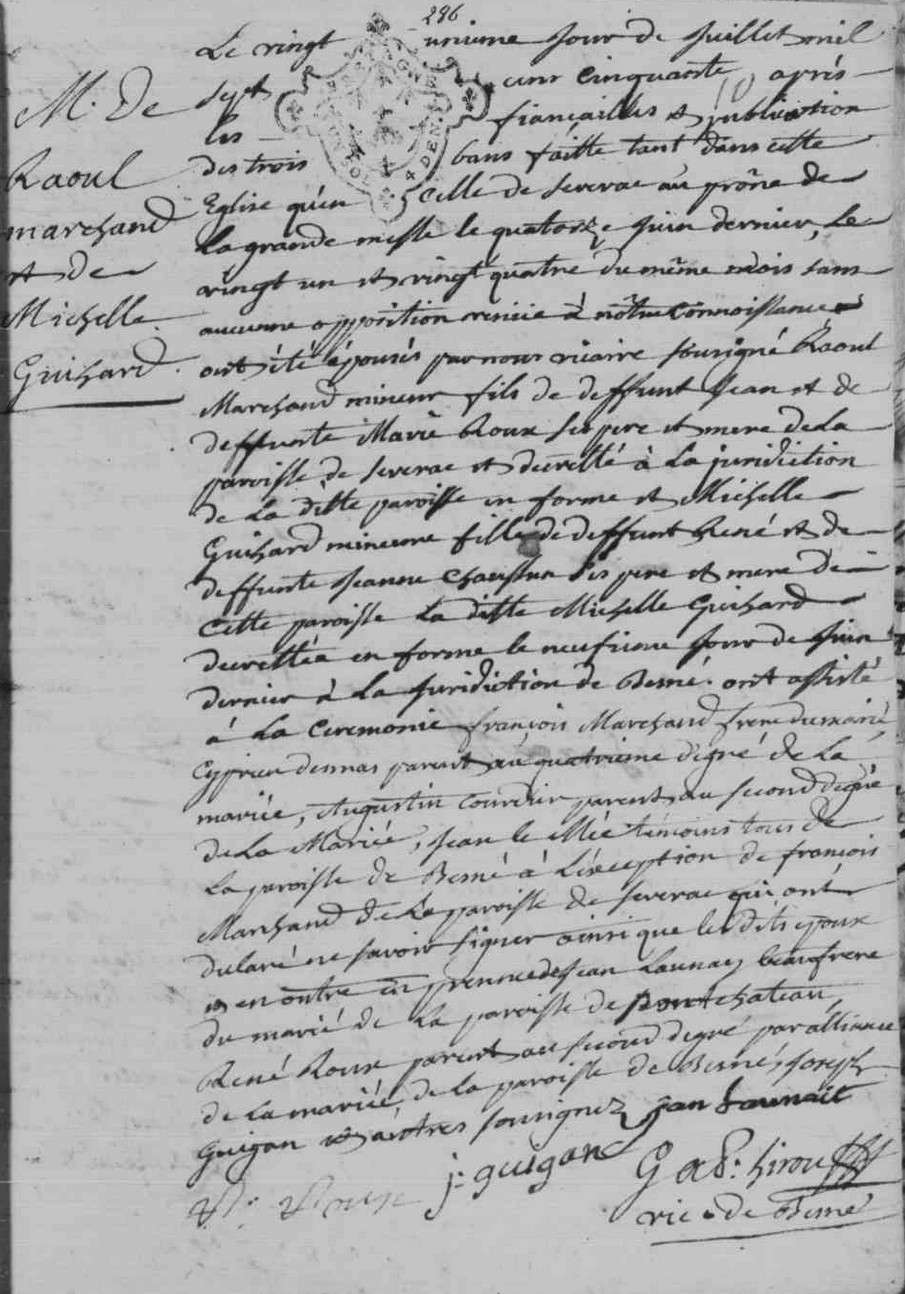 286
M. De
Raoul
marchand
et de
Michelle
Guihard.
Le vingt unieme jour de juillet mil
sept cent cinquante après
les fiançailles et publication
des trois bans faitte tant dans cette
Eglise qu'en celle de severac au prône de
La grande messe le quatorze juin dernier, Le
vingt un et vingt quatre du même mois sans
aucunne opposition venüe à nôtre connoissance
ont été épousés par nous vicaire sousigné Raoul
Marchand mineur fils de deffunt Jean et de
deffunte Marie Roux ses pere et mere de La
paroisse de severac et decretté à La juridiction
de La ditte paroisse en forme et Michelle
Guihard mineure fille de deffunt René et de
deffunte Jeanne ses pere et mere de
cette paroisse La ditte Michelle Guihard
decrettée en forme le neufieme jour de juin
dernier à La Juridiction de Besné. ont assisté
à La Ceremonie françois Marchand frere du marié,
Cyprien parent au quatrieme degré de La
mariée, Augustin parent au second degré
de La Mariée, jean le Mée témoins tous de
La paroisse de Besné à L'éxception de françois
Marchand de La paroisse de severac qui ont
declaré ne savoir signer ainsi que les dits époux
en outre en presence de Jean Launay beaufrere
du marié de La paroisse de pontchateau,
René Roux parent au second degré par alliance
de La mariée de la paroisse de Besné, Joseph
Guigan et autres sousignez jan Launait
j. guigan G hirou
Roux vic. de Besné